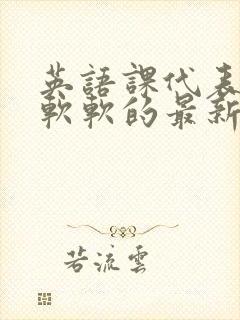 英語課代表
軟軟的最新
若流雲